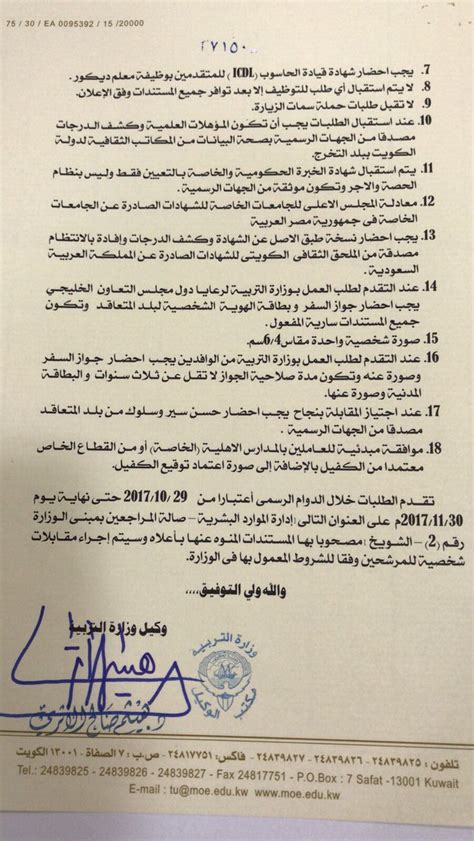 75 / 30 / EA 0095392 / 15 /20000
٢٧١٥٠
7. يجب احضار شهادة قيادة الحاسوب (ICDL) للمتقدمين بوظيفة معلم ديكور.
8. لا يتم استقبال أي طلب للتوظيف إلا بعد توافر جميع المستندات وفق الإعلان.
9. لا تقبل طلبات حملة سمات الزيارة.
10. عند استقبال الطلبات يجب أن تكون المؤهلات العلمية وكشف الدرجات
مصدقا من الجهات الرسمية بصحة البيانات من المكاتب الثقافية لدولة
الكويت ببلد التخرج.
11. يتم استقبال شهادة الخبرة الحكومية والخاصة بالتعيين فقط وليس بنظام
الحصة والاجر وتكون موثقة من الجهات الرسمية.
12. معادلة المجلس الاعلى للجامعات الخاصة للشهادات الصادرة عن الجامعات
الخاصة في جمهورية مصر العربية
13. يجب احضار نسخة طبق الاصل عن الشهادة وكشف الدرجات وإفادة بالانتظام
مصدقة من الملحق الثقافي الكويتى للشهادات الصادرة عن المملكة العربية
السعودية.
14. عند التقدم لطلب العمل بوزارة التربية لرعايا دول مجلس التعاون الخليجي
يجب احضار جواز السفر و بطاقة الهوية الشخصية لبلد المتعاقد وتكون
جميع المستندات سارية المفعول.
15. صورة شخصية واحدة مقاس 6/4سم.
16. عند التقدم لطلب العمل بوزارة التربية من الوافدين يجب احضار جواز السفر
وصورة عنه وتكون مدة صلاحية الجواز لا تقل عن ثلاث سنوات و البطاقة
المدنية وصورة عنها.
17. عند اجتياز المقابلة بنجاح يجب احضار حسن سير وسلوك من بلد المتعاقد
مصدقا من الجهات الرسمية.
18. موافقة مبدئية للعاملين بالمدارس الاهلية (الخاصة) أو من القطاع الخاص
معتمدا من الكفيل بالإضافة إلى صورة اعتماد توقيع الكفيل.
تقدم الطلبات خلال الدوام الرسمى أعتبارا من 2017/10/29 حتى نهاية يوم
2017/11/30م على العنوان التالى (إدارة الموارد البشرية – صالة المراجعين بمبنى الوزارة
رقم (2) – الشويخ) مصحوبا بها المستندات المنوه عنها بأعلاه وسيتم إجراء مقابلات
شخصية للمرشحين وفقا للشروط المعمول بها في الوزارة.
والله ولي التوفيق،،،،
وكيل وزارة التربية
وزارة التربية
مكتب الوكيل
تلفون : ٢٤٨٣٩٨٢٥ - ٢٤٨٣٩٨٢٦ - ٢٤٨٣٩٨٢٧ - فاكس: ٢٤٨١٧٧٥١ - ص.ب : ٧ الصفاة - ١٣٠٠١ الكويت
Tel.: 24839825 - 24839826 - 24839827 - Fax 24817751 - P.O.Box : 7 Safat -13001 Kuwait
E-mail : tu@moe.edu.kw www.moe.edu.kw